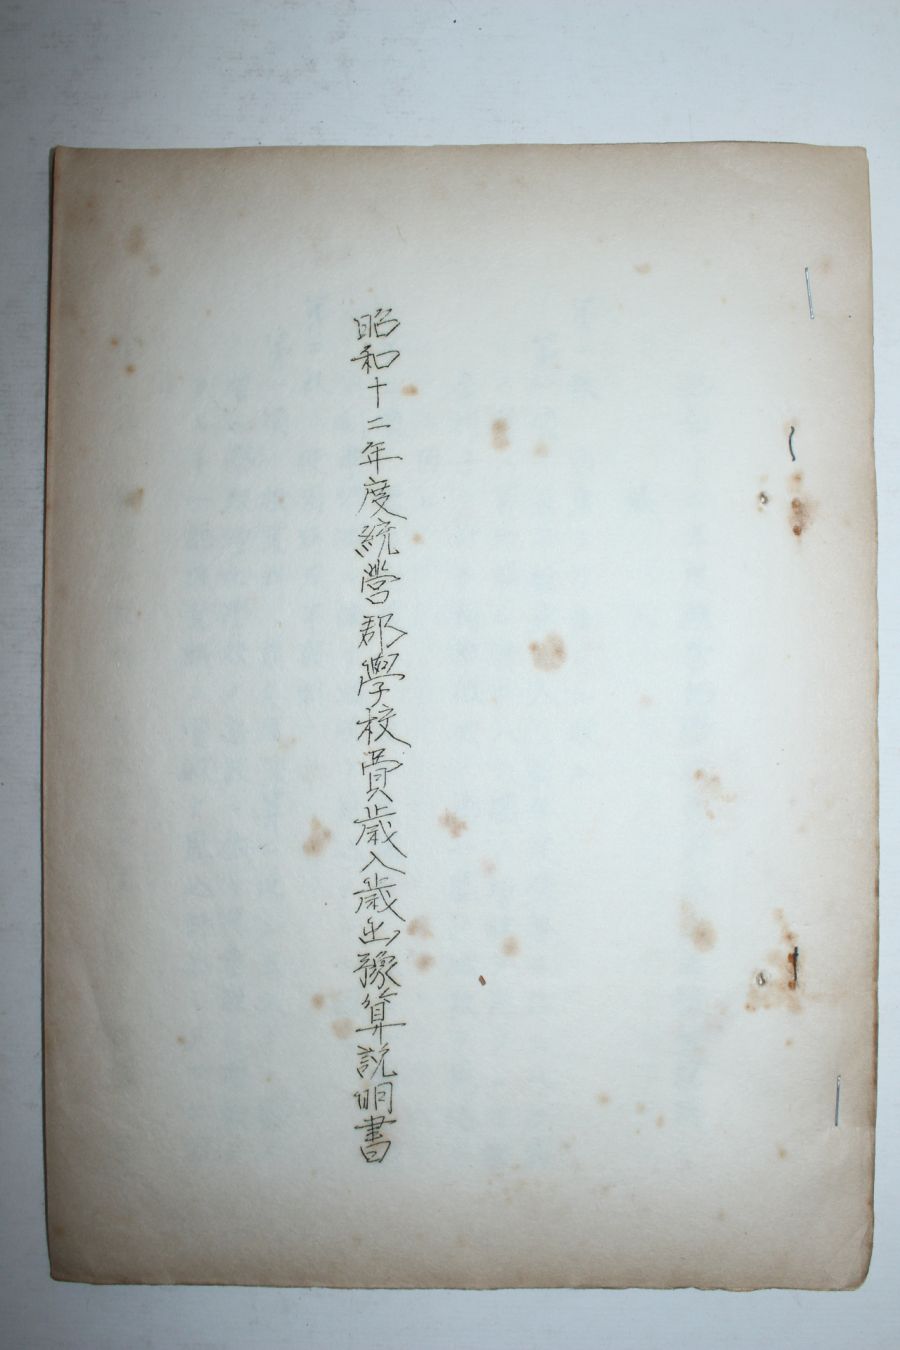 昭和十二年度統營郡學校費歲入歲出豫算説明書